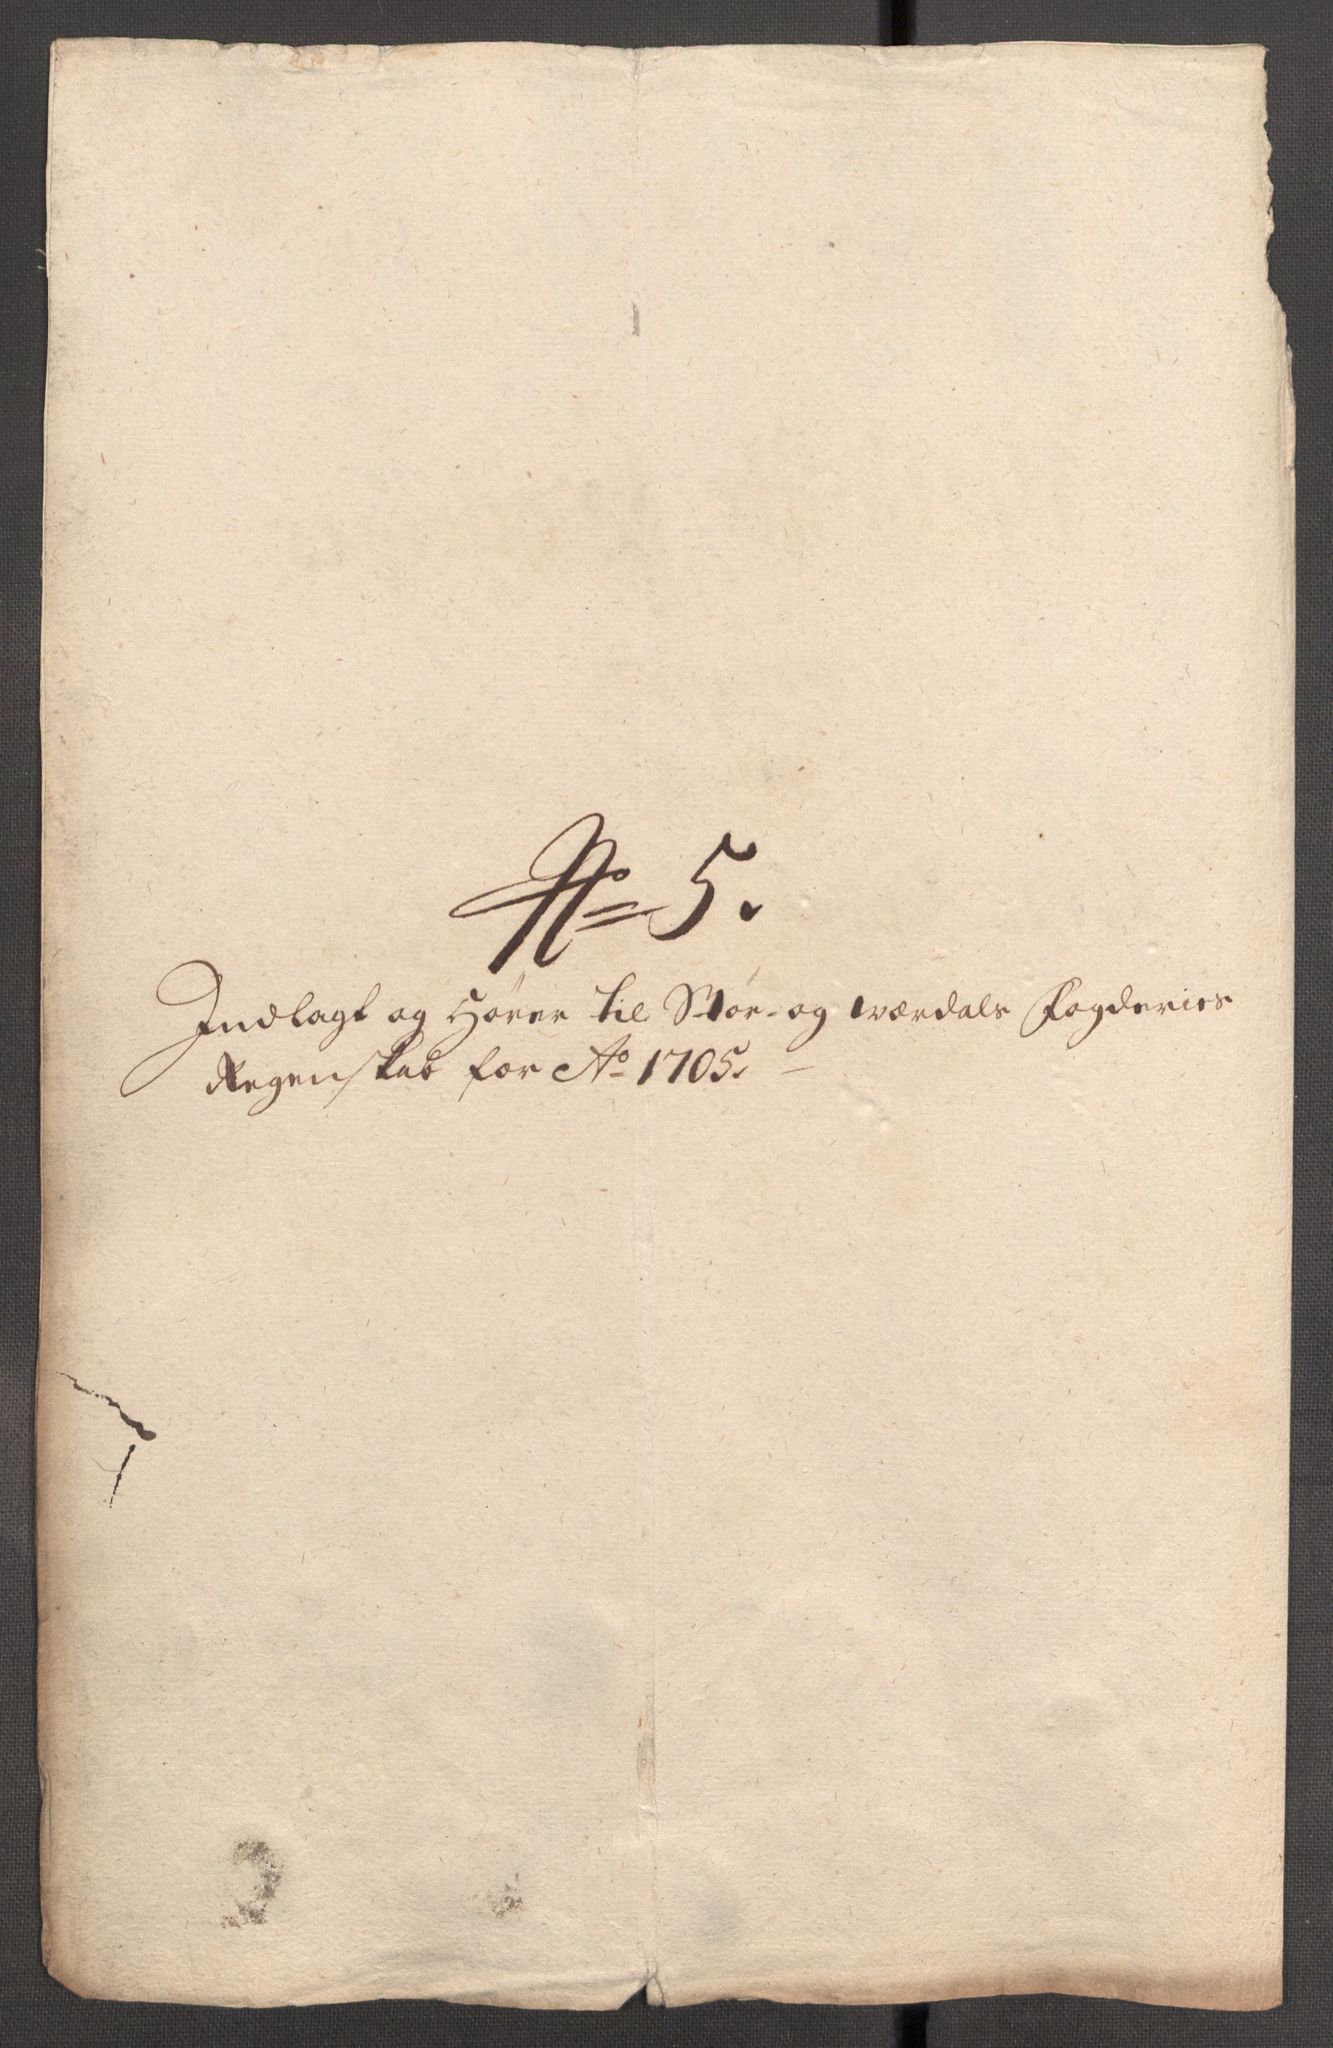 No 5.
Indlagt og Hører til Stør- og Værdals Fogderies
Regenskab for Ao 1705.